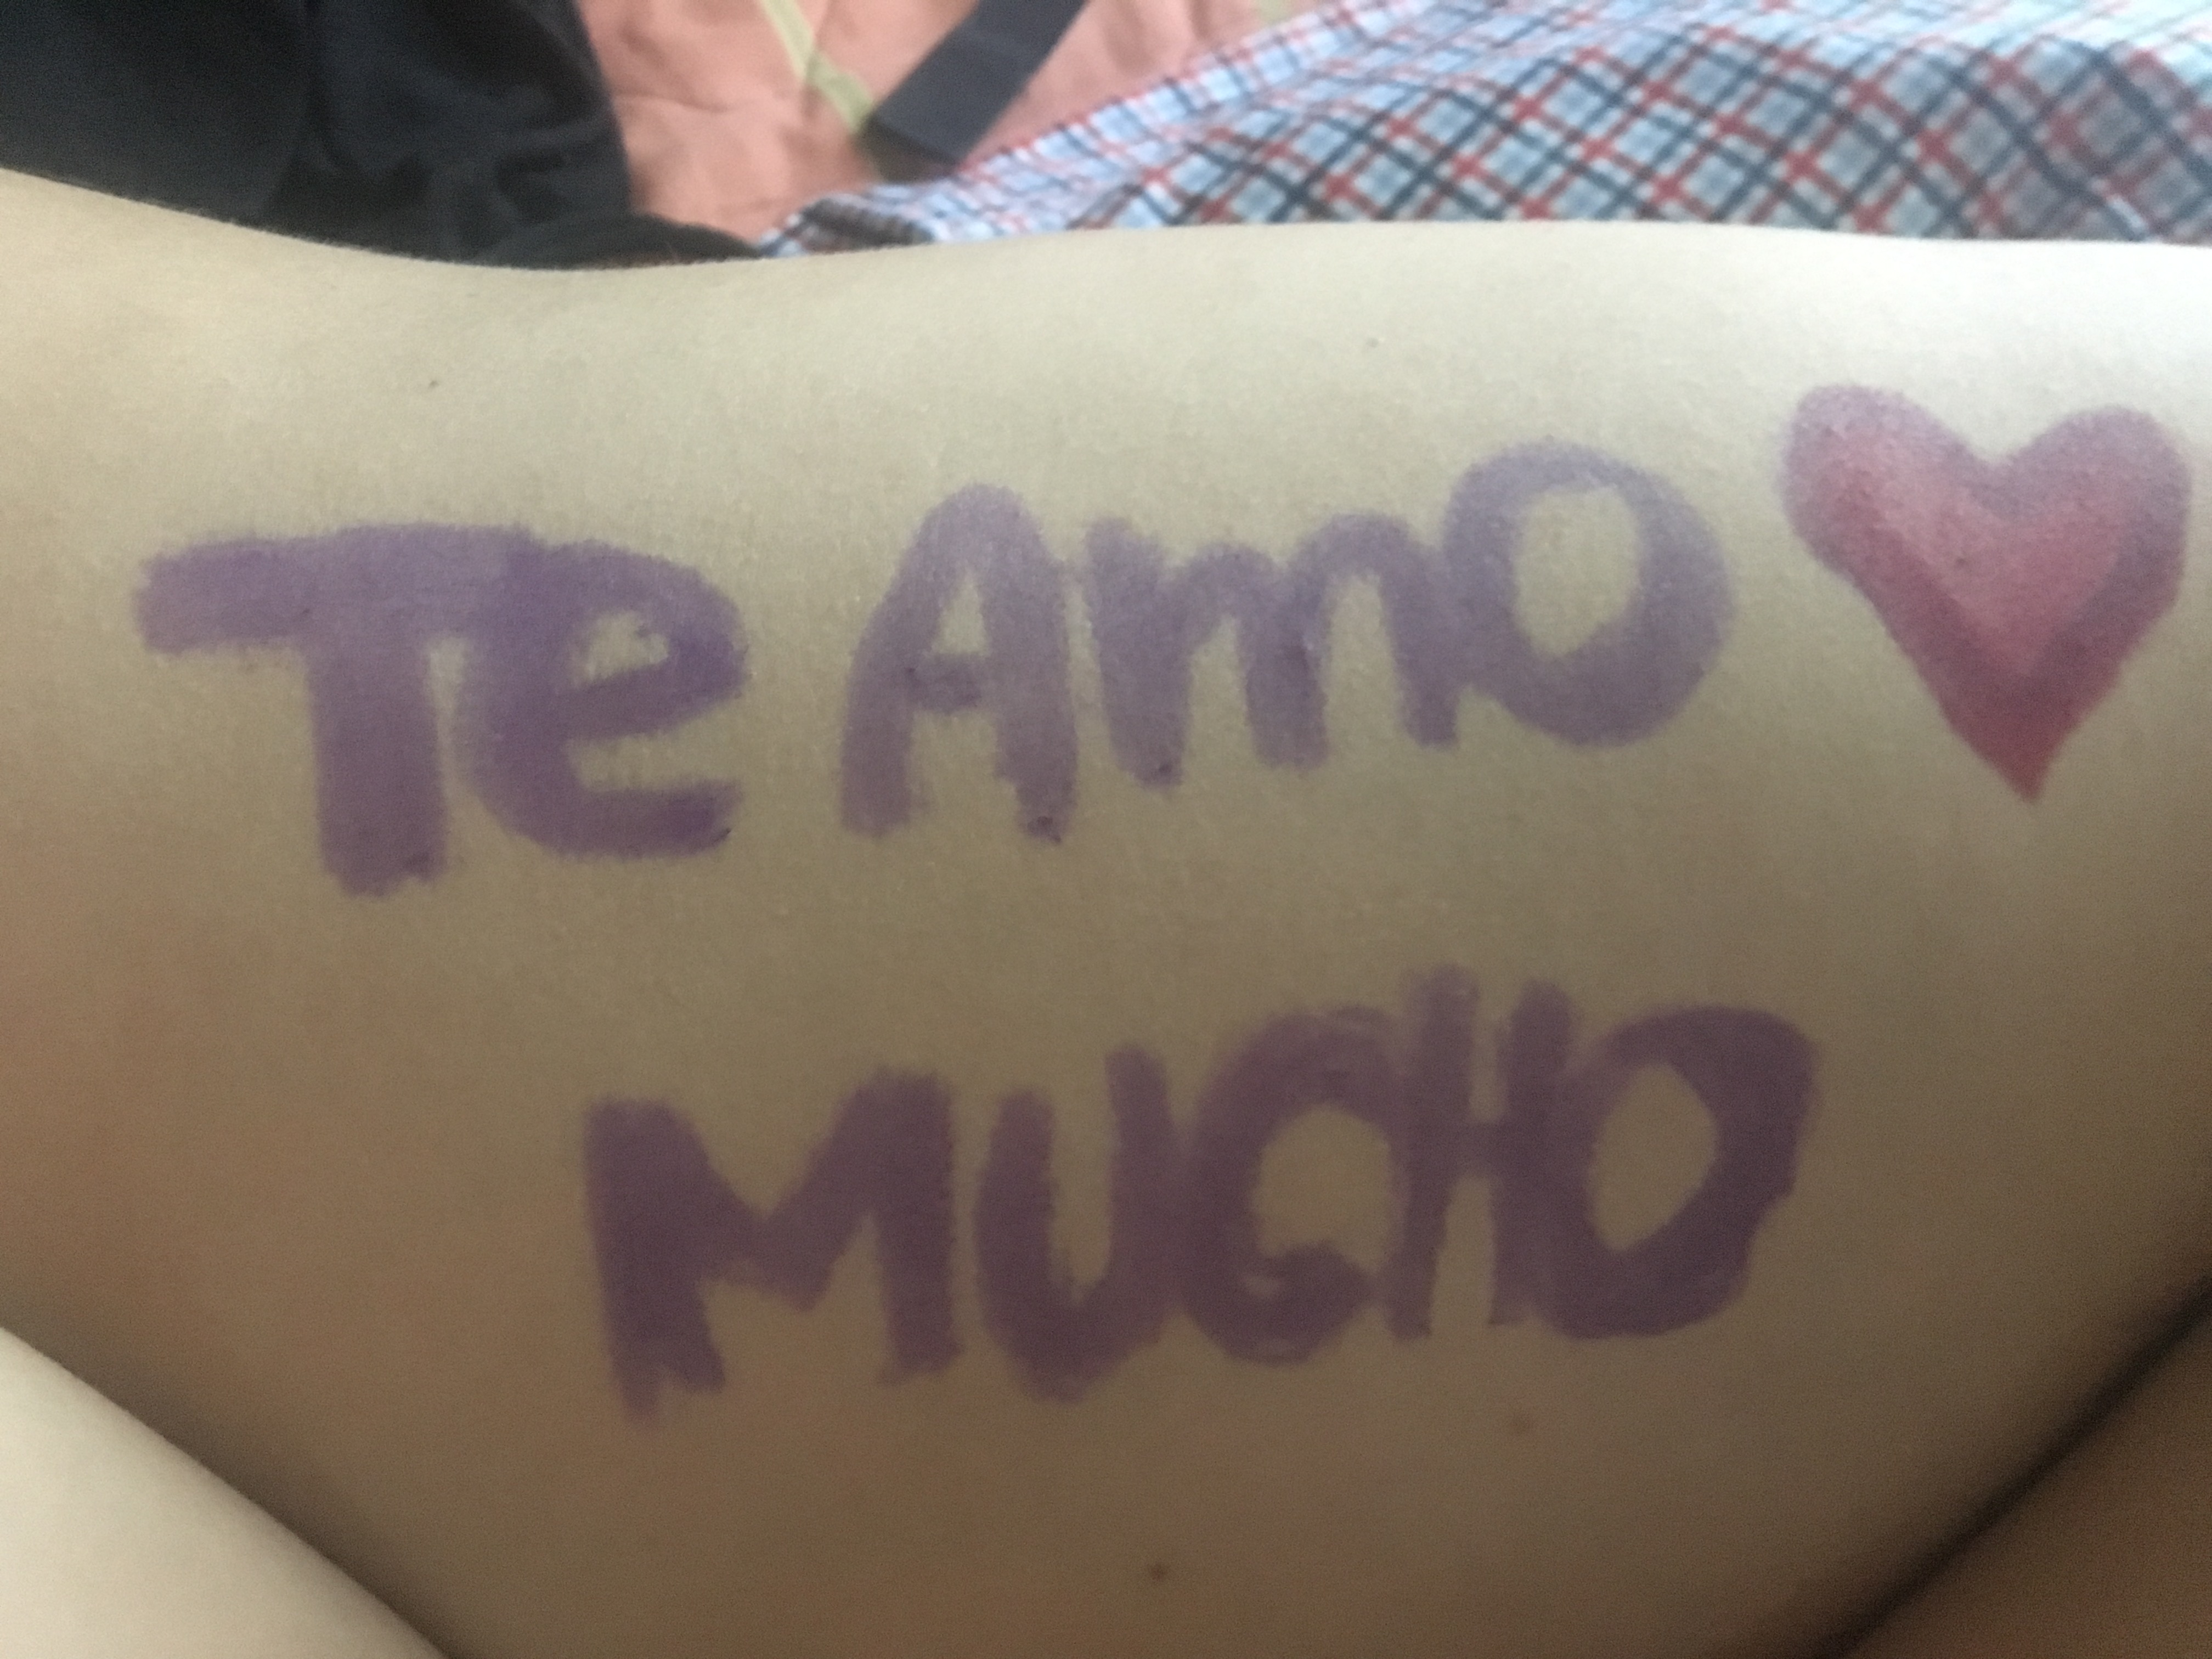 Te Amo ❤
MUCHO